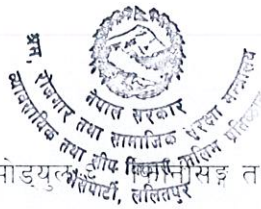 नेपाल सरकार
श्रम, रोजगार तथा सामाजिक सुरक्षा मन्त्रालय
व्यावसायिक तथा सीप विकास तालिम प्रतिष्ठान
भैंसेपाटी, ललितपुर
मोड्युल